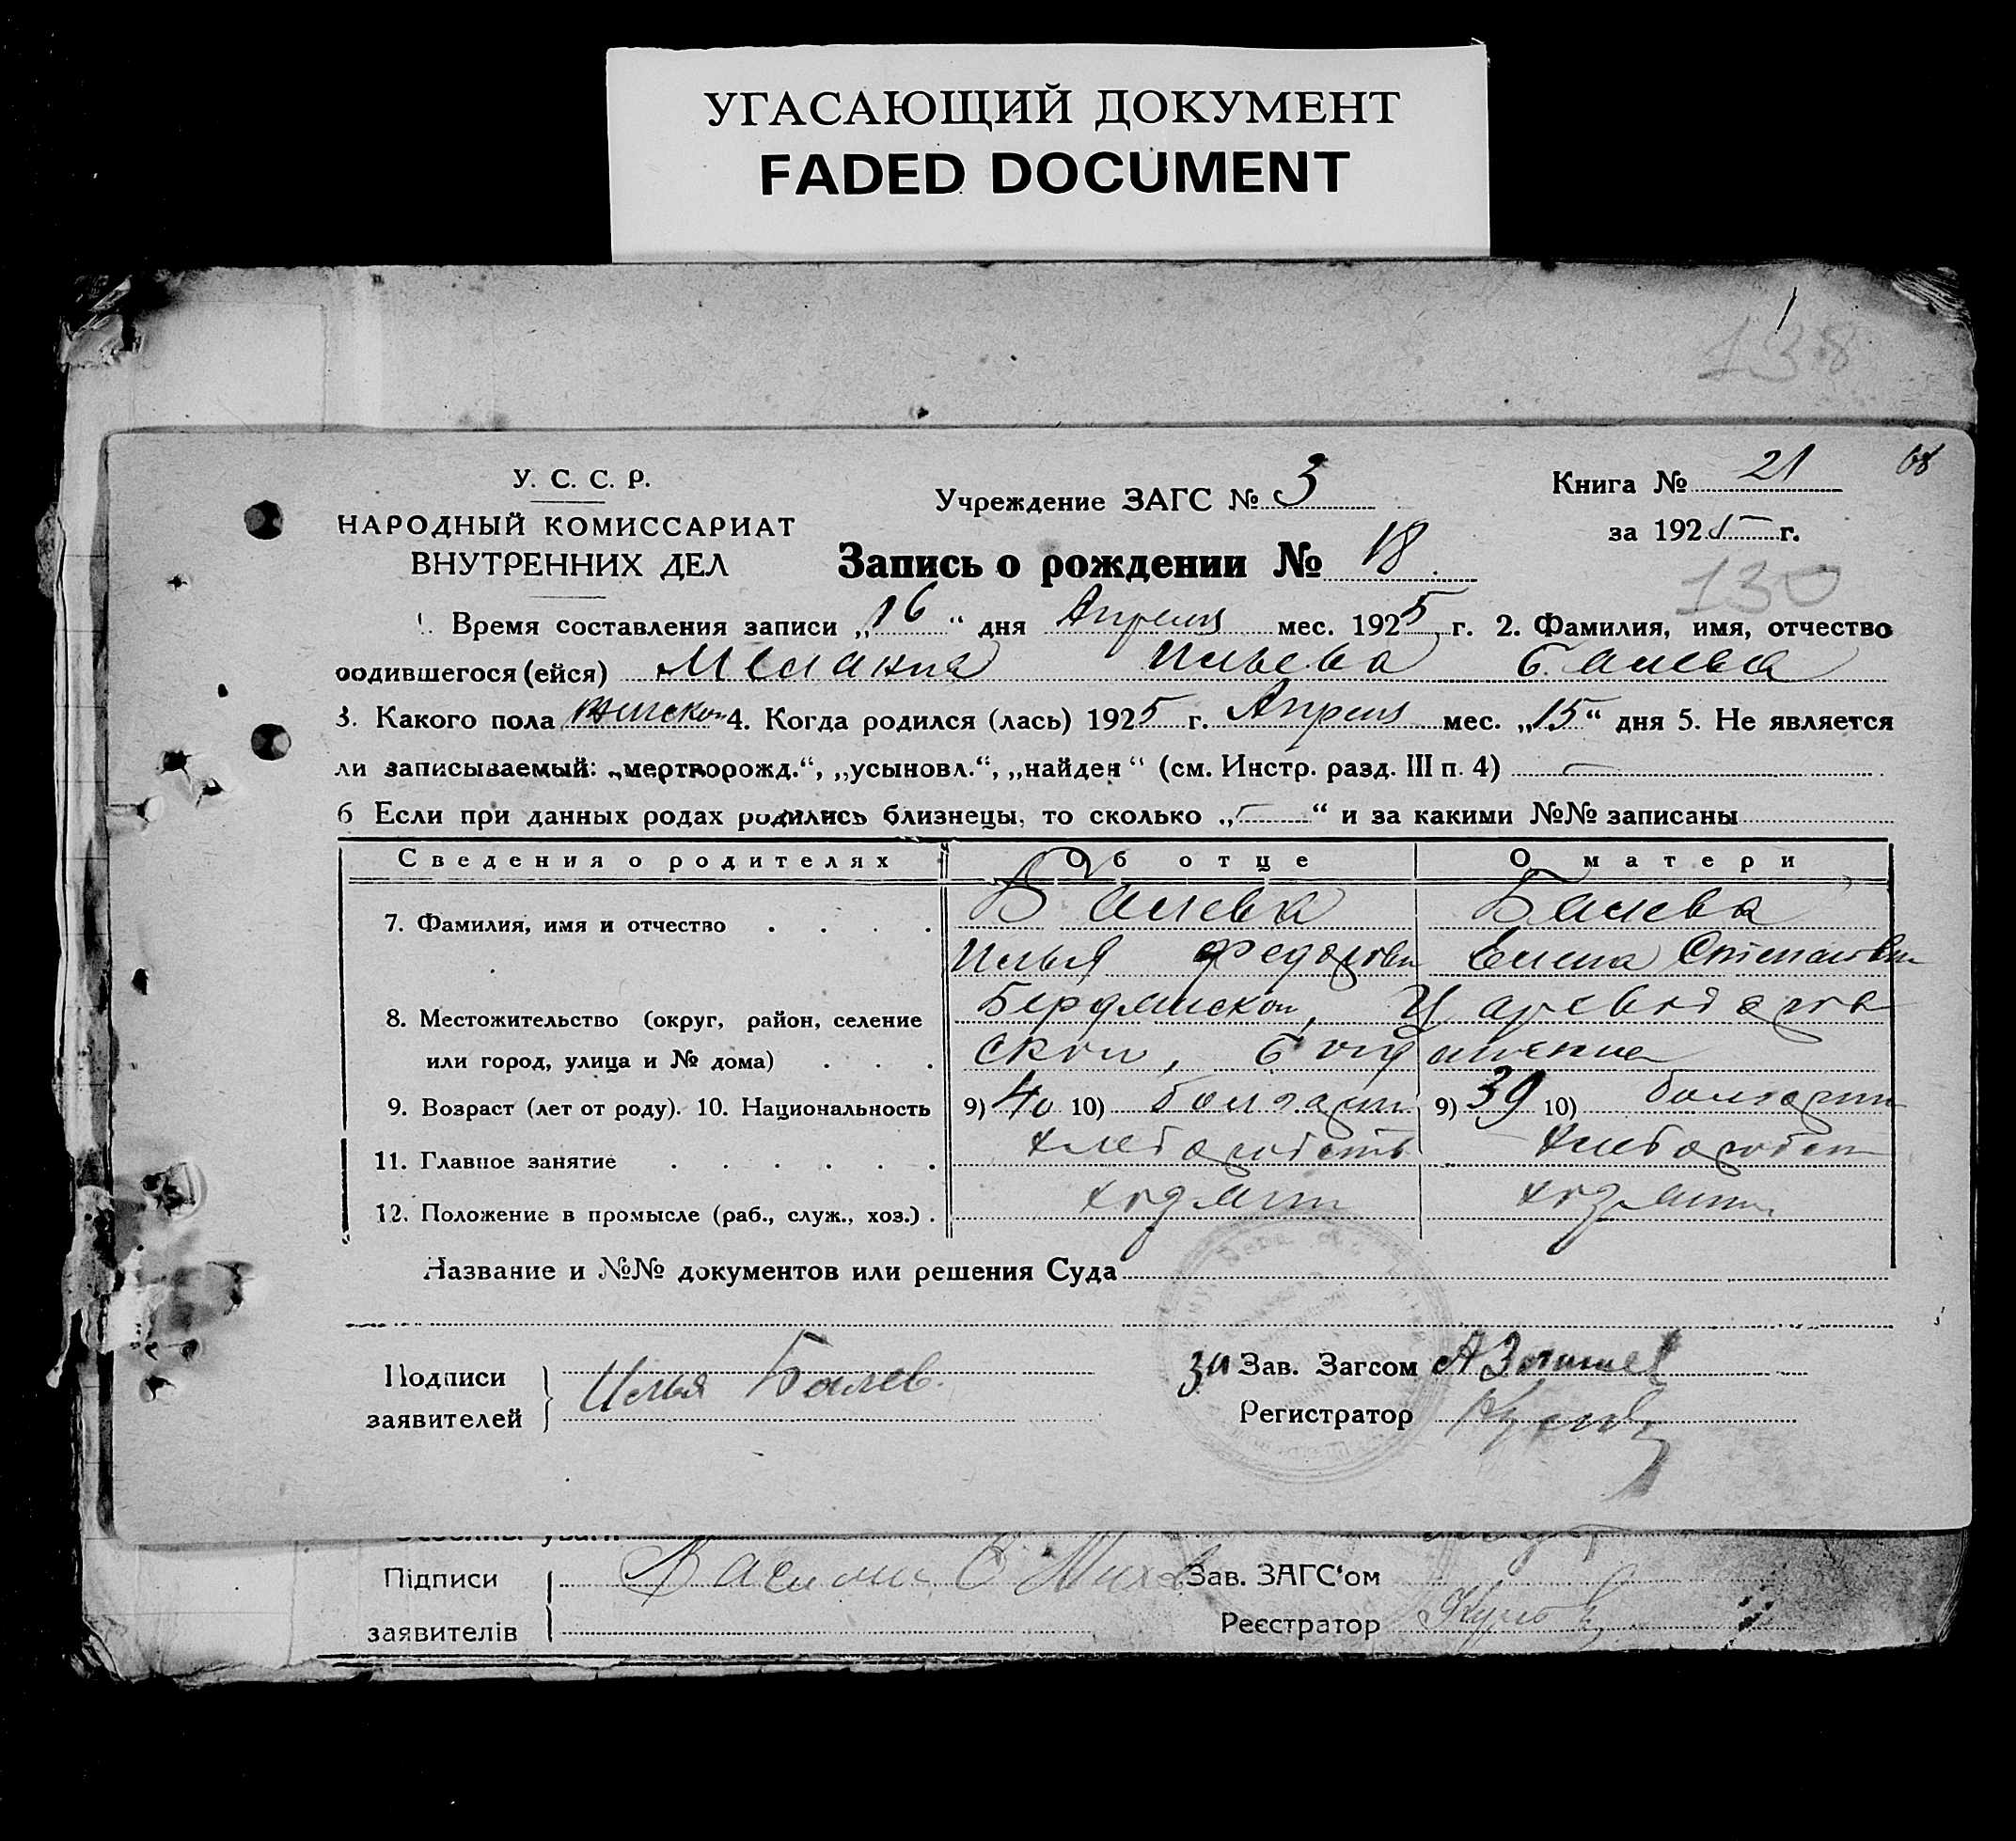 УГАСАЮЩИЙ ДОКУМЕНТ
FADED DOCUMENT
138
У. С. С. Р.
НАРОДНЫЙ КОМИССАРИАТ
ВНУТРЕННИХ ДЕЛ
Учреждение ЗАГС № 3
Книга № 21
68
за 1925 г.
Запись о рождении № 18
130
1. Время составления записи „16“ дня Апреля мес. 1925 г. 2. Фамилия, имя, отчество
родившегося (ейся) Мелания Ильева Балева
3. Какого пола женском 4. Когда родился (лась) 1925 г. Апреля мес. „15“ дня 5. Не является
ли записываемый: „мертворожд.“, „усыновл.“, „найден“ (см. Инстр. разд. III п. 4) —
6 Если при данных родах родились близнецы, то сколько „—“ и за какими №№ записаны
Сведения о родителях Об отце О матери
7. Фамилия, имя и отчество Балева Балева
Илья Федорови Елена Степанови
8. Местожительство (округ, район, селение Бердянском, Царевода
или город, улица и № дома) ском,
9. Возраст (лет от роду). 10. Национальность 9) 40 10) болгарин 9) 39 10) болгарин
11. Главное занятие хлебаробств хлебаробст
12. Положение в промысле (раб., служ., хоз.) хозяин хозяин
Название и №№ документов или решения Суда
Подписи заявителей Илья Балев
за Зав. Загсом
Регистратор
Підписи
Зав. ЗАГС‘ом
заявителів
Реєстратор